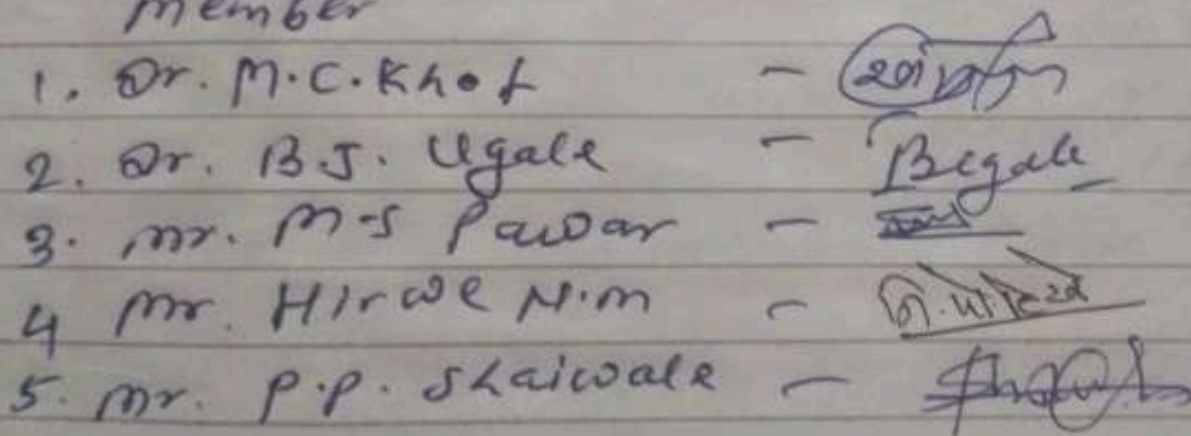 member
1. Dr. M.C. Khot -
2. Dr. B.J. Ugale - Bugale
3. mr. M-S Pawar -
4 mr. Hirwe N.M -
5. mr. P.P. Shaiwale -